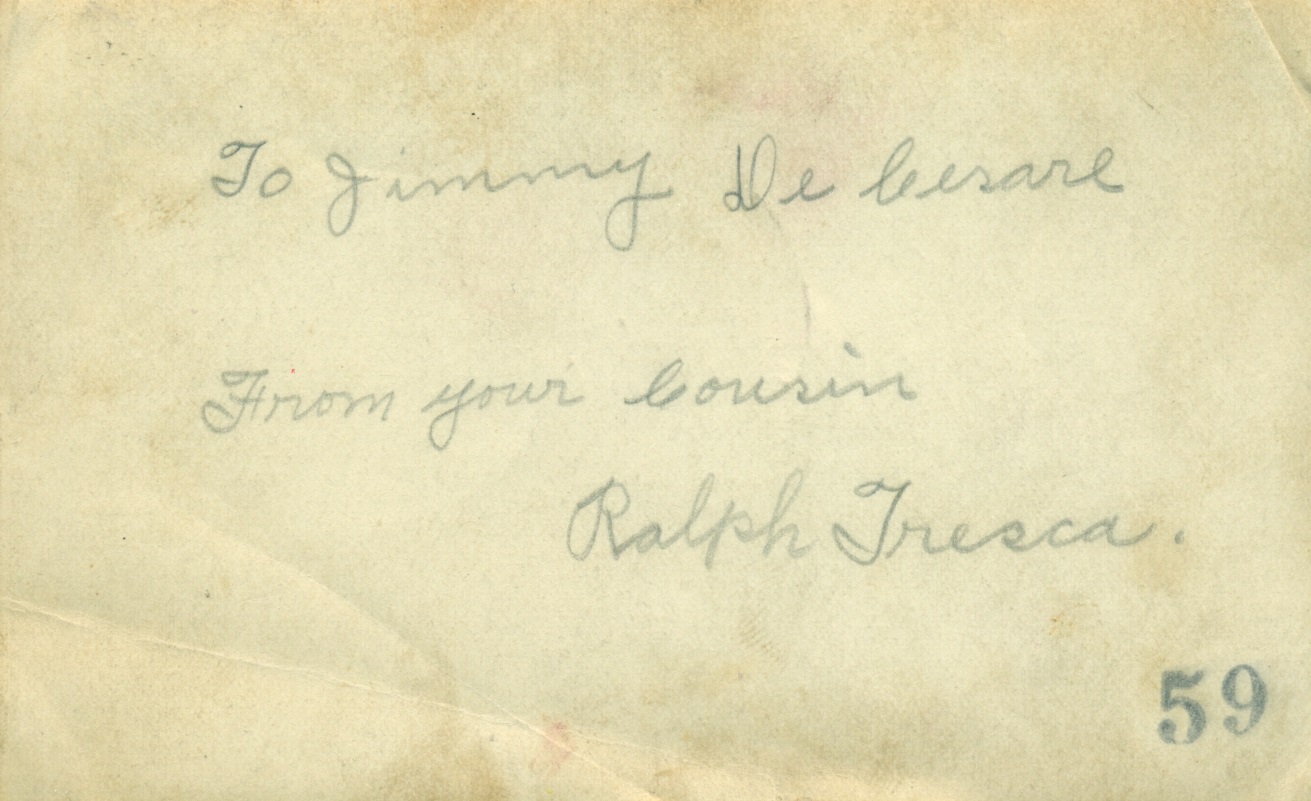 To Jimmy De Cesare
From your Cousin
Ralph Tresca.
59